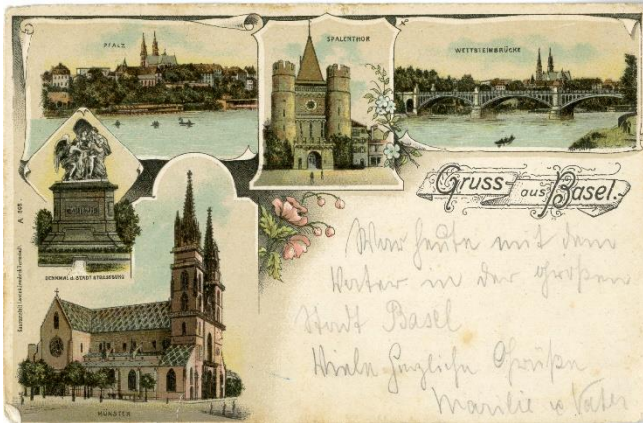 PFALZ
SPALENTHOR
WETTSTEINBRÜCKE
Gruss aus Basel.
DENKMAL d. STADT STRASSBURG
MÜNSTER
A 108
War heute mit dem
Vater in der großen
Stadt Basel
Viele herzliche Grüße
Marilie u Vater